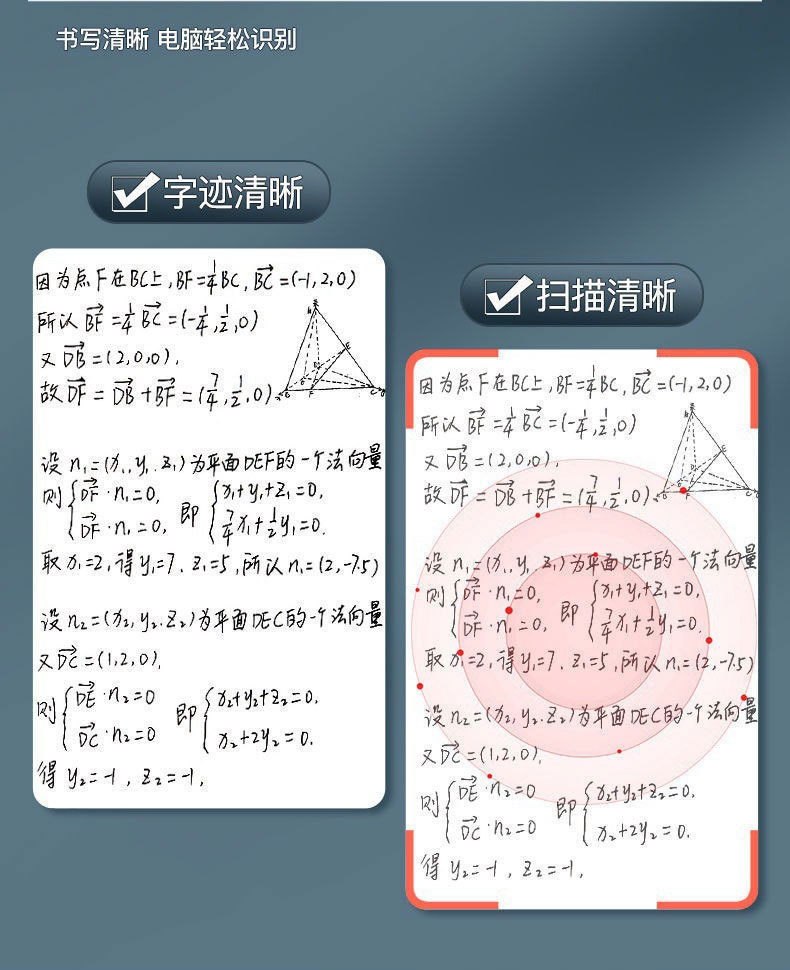 书写清晰 电脑轻松识别
字迹清晰
因为点F在BC上,BF=¼BC,BC→=(-1,2,0)
所以BF→=¼BC→=(-¼,½,0)
又DB→=(2,0,0),
故DF→=DB→+BF→=(7/4,½,0).
设n₁=(x₁,y₁,z₁)为平面DEF的一个法向量
则{DF→·n₁=0, 即{x₁+y₁+z₁=0,
DF→·n₁=0, 7/4x₁+½y₁=0.
取x₁=2,得y₁=7、z₁=5,所以n₁=(2,-7.5)
设n₂=(x₂,y₂.z₂)为平面DEC的一个法向量
又DC→=(1,2,0),
则{DE→·n₂=0 即{x₂+y₂+z₂=0,
DC→·n₂=0 x₂+2y₂=0.
得y₂=-1,z₂=-1,
扫描清晰
因为点F在BC上,BF=¼BC,BC→=(-1,2,0)
所以BF→=¼BC→=(-¼,½,0)
又DB→=(2,0,0),
故DF→=DB→+BF→=(7/4,½,0).
设n₁=(x₁,y₁,z₁)为平面DEF的一个法向量
则{DF→·n₁=0, 即{x₁+y₁+z₁=0,
DF→·n₁=0, 7/4x₁+½y₁=0.
取x₁=2,得y₁=7、z₁=5,所以n₁=(2,-7.5)
设n₂=(x₂,y₂.z₂)为平面DEC的一个法向量
又DC→=(1,2,0),
则{DE→·n₂=0 即{x₂+y₂+z₂=0,
DC→·n₂=0 x₂+2y₂=0.
得y₂=-1,z₂=-1,